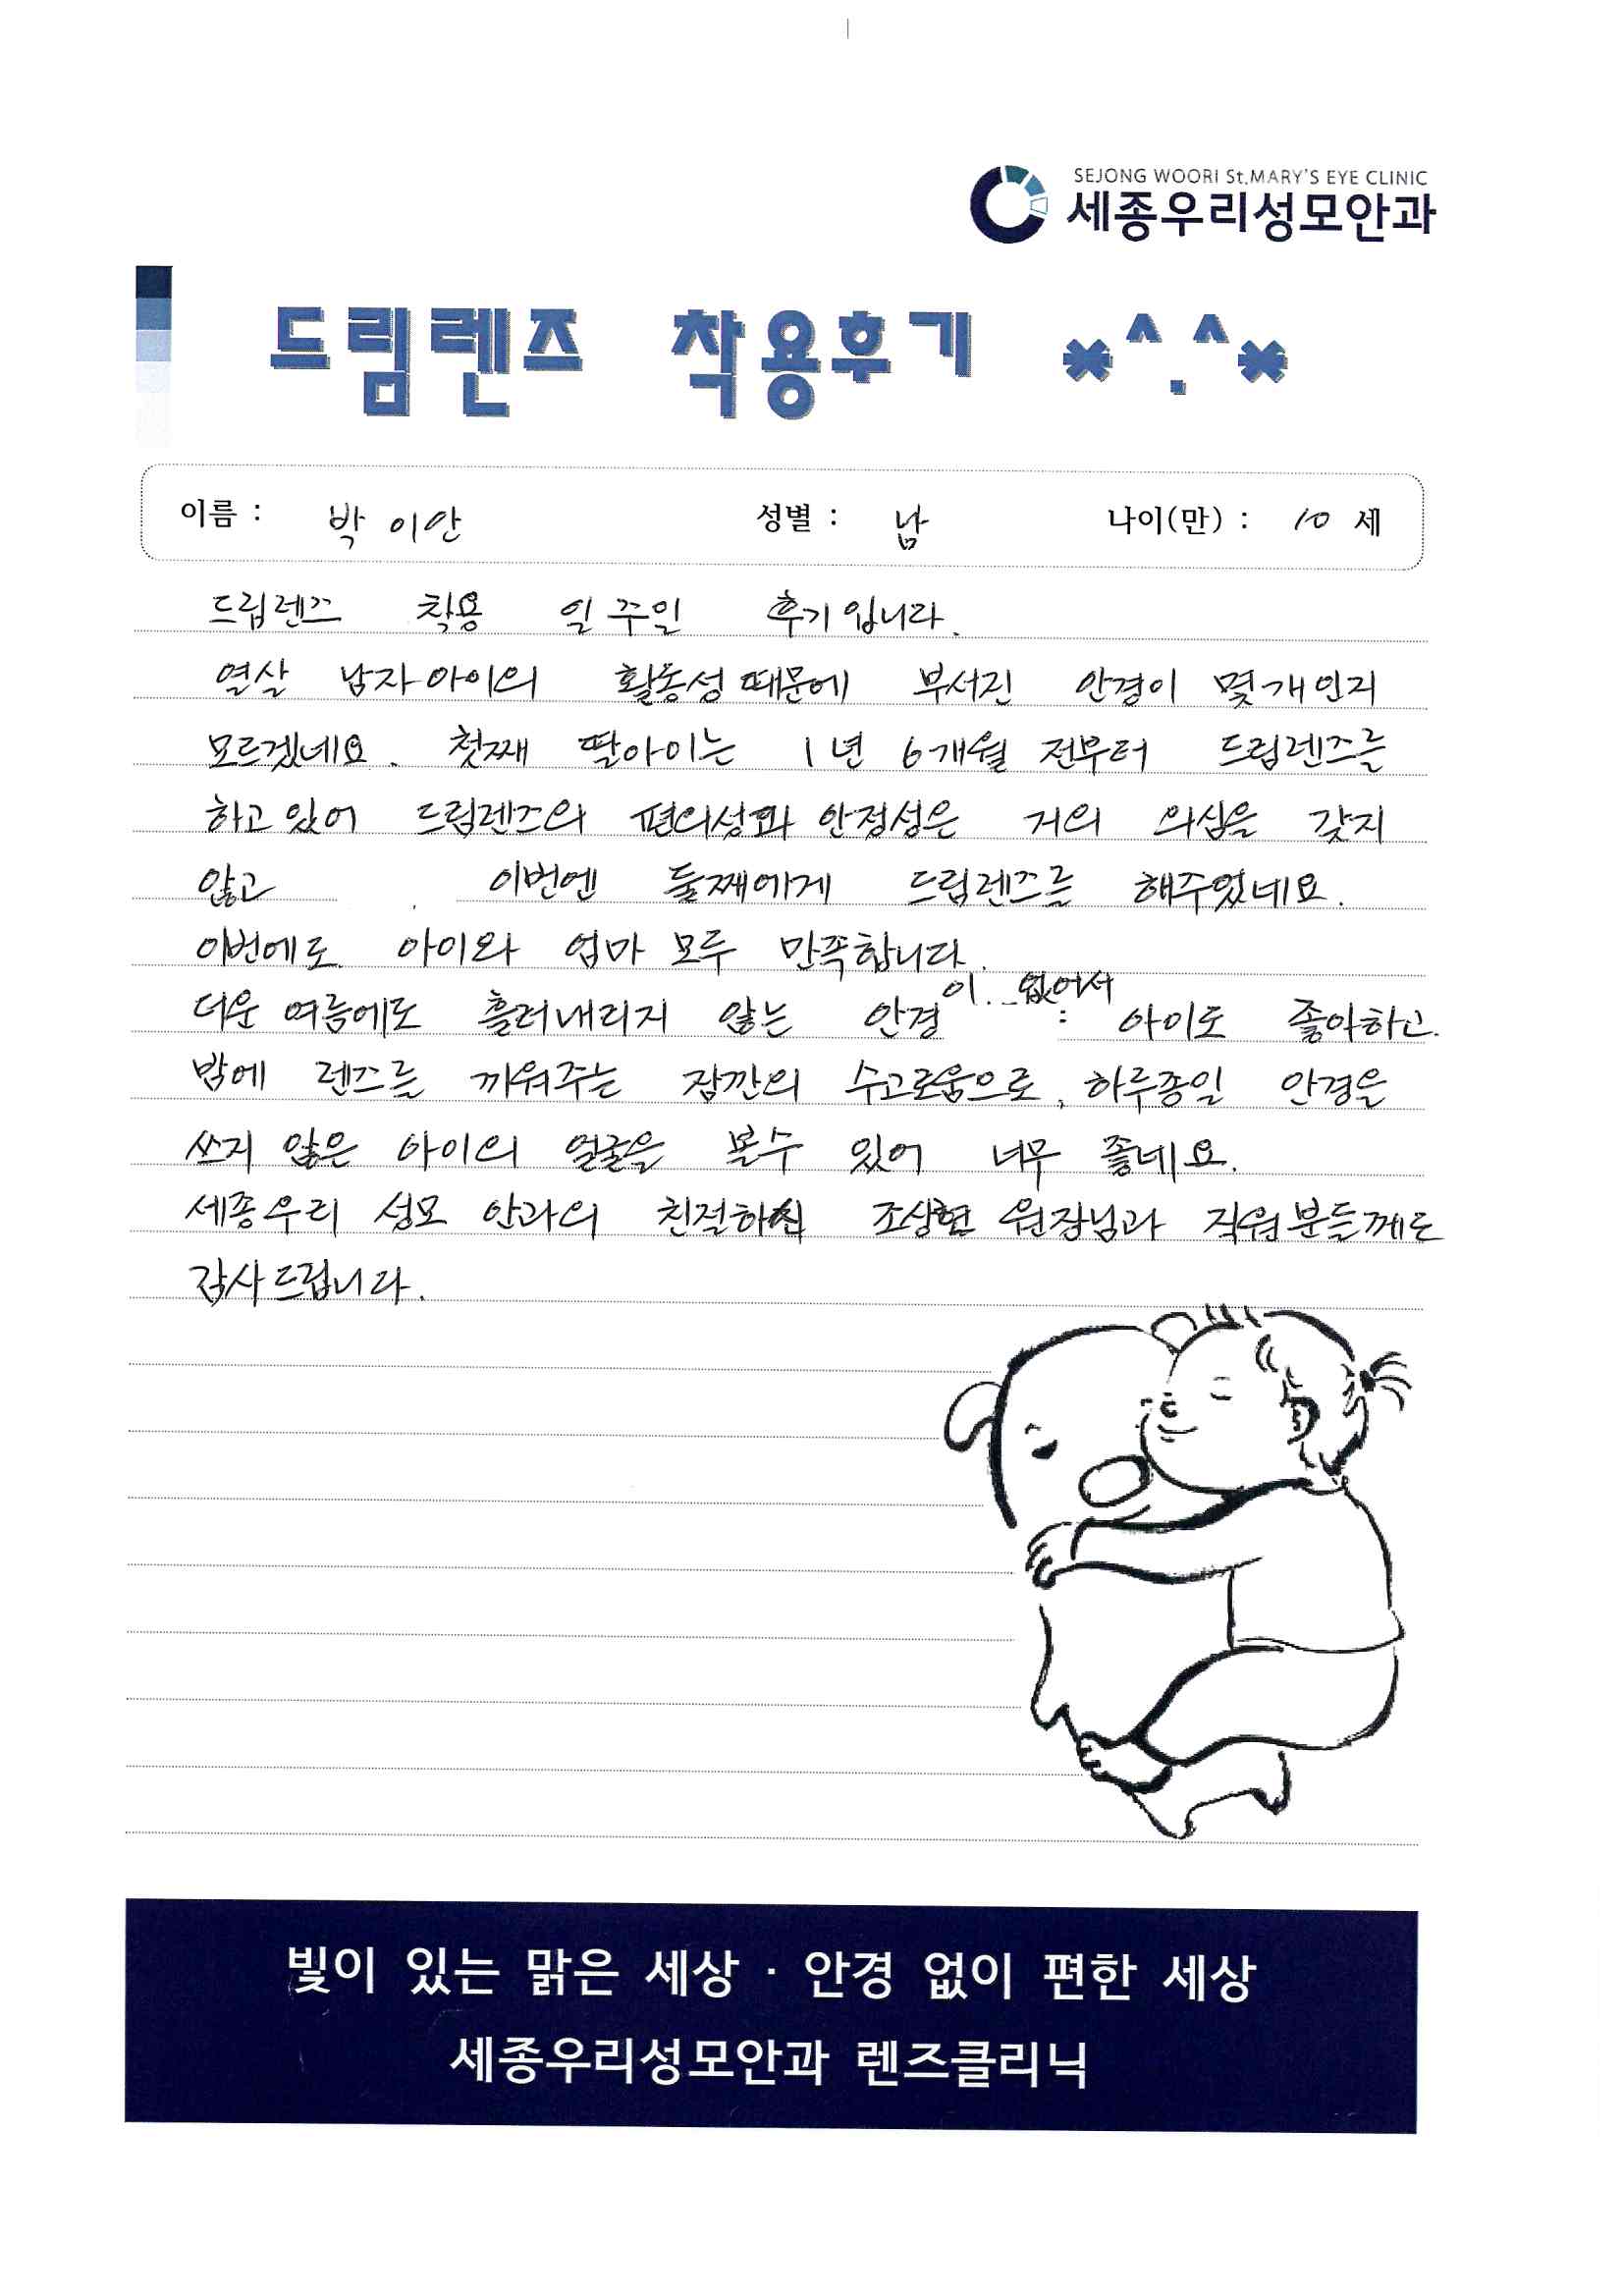 SEJONG WOORI St.MARY'S EYE CLINIC
세종우리성모안과
드림렌즈 착용후기 *^.^*
이름 : 박 이안 성별 : 남 나이(만) : 10 세
드림렌즈 착용 일주일 후기입니다.
열살 남자아이의 활동성 때문에 부서진 안경이 몇개인지
모르겠네요. 첫째 딸아이는 1년 6개월 전부터 드림렌즈를
하고있어 드림렌즈의 편의성과 안정성은 거의 의심을 갖지
않고 이번엔 둘째에게 드림렌즈를 해주었네요.
이번에도 아이와 엄마 모두 만족합니다.
더운 여름에도 흘러내리지 않는 안경이 없어서 아이도 좋아하고.
밤에 렌즈를 끼워주는 잠깐의 수고로움으로, 하루종일 안경을
쓰지 않은 아이의 얼굴을 볼수 있어 너무 좋네요.
세종우리 성모 안과의 친절하신 조상현 원장님과 직원분들께도
감사드립니다.
빛이 있는 맑은 세상 · 안경 없이 편한 세상
세종우리성모안과 렌즈클리닉